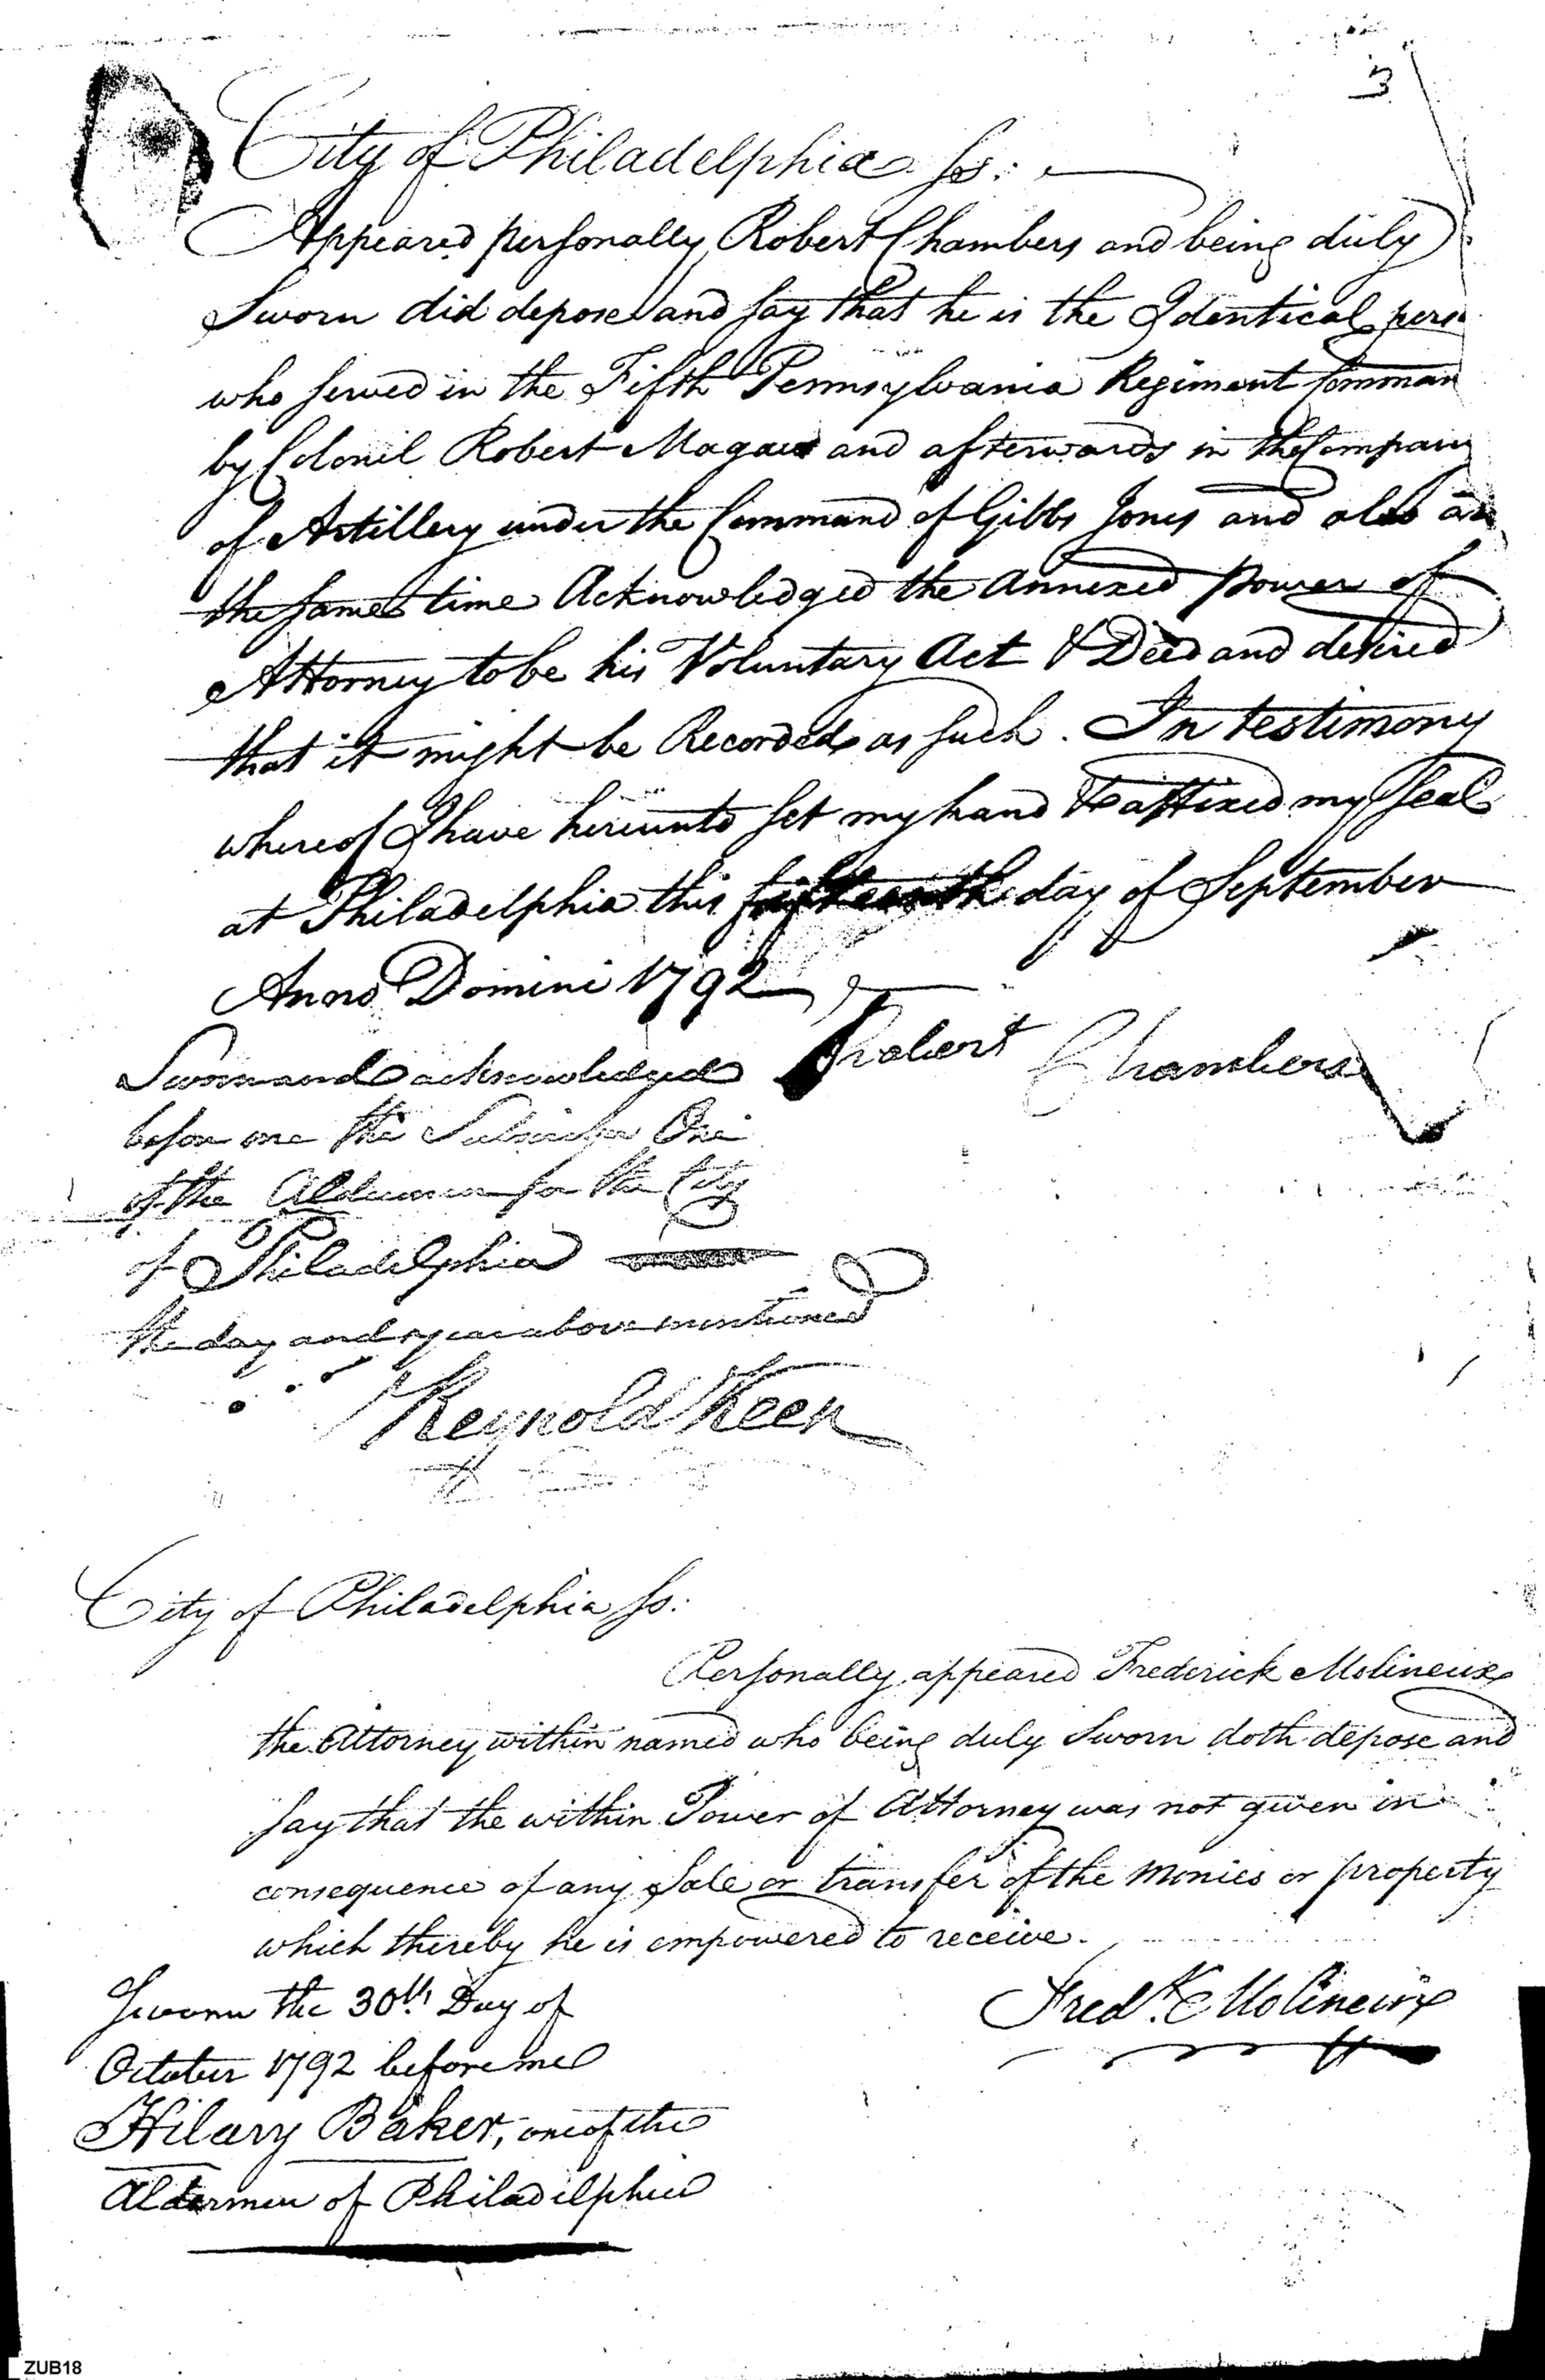 3
City of Philadelphia ss:
Appeared personally Robert Chambers and being duly
Sworn did depose and say that he is the Identical pers
who served in the Fifth Pennsylvania Regiment Comman
by Colonil Robert Magaw and afterwards in the Company
of Artillery under the Command of Gibbs Jones and also at
the same time Acknowledged the annexed power of
Attorney to be his Voluntary Act & Deed and desired
that it might be Recorded as such. In testimony
whereof I have hereunto set my hand & affixed my Seal
at Philadelphia this day of September
Anno Domini 1792
Robert Chambers
Sworn and acknowledged
before me the Subscriber One
of the Aldermen for the City
of Philadelphia
the day and year above mentioned
Reynold Keen
City of Philadelphia ss:
Personally appeared Frederick Molineux
the Attorney within named who being duly Sworn doth depose and
say that the within Power of Attorney was not given in
consequence of any Sale or transfer of the Monies or property
which thereby he is empowered to receive.
Fredk. Molineux
Sworn the 30th Day of
October 1792 before me
Hilary Baker, one of the
Aldermen of Philadelphia
ZUB18